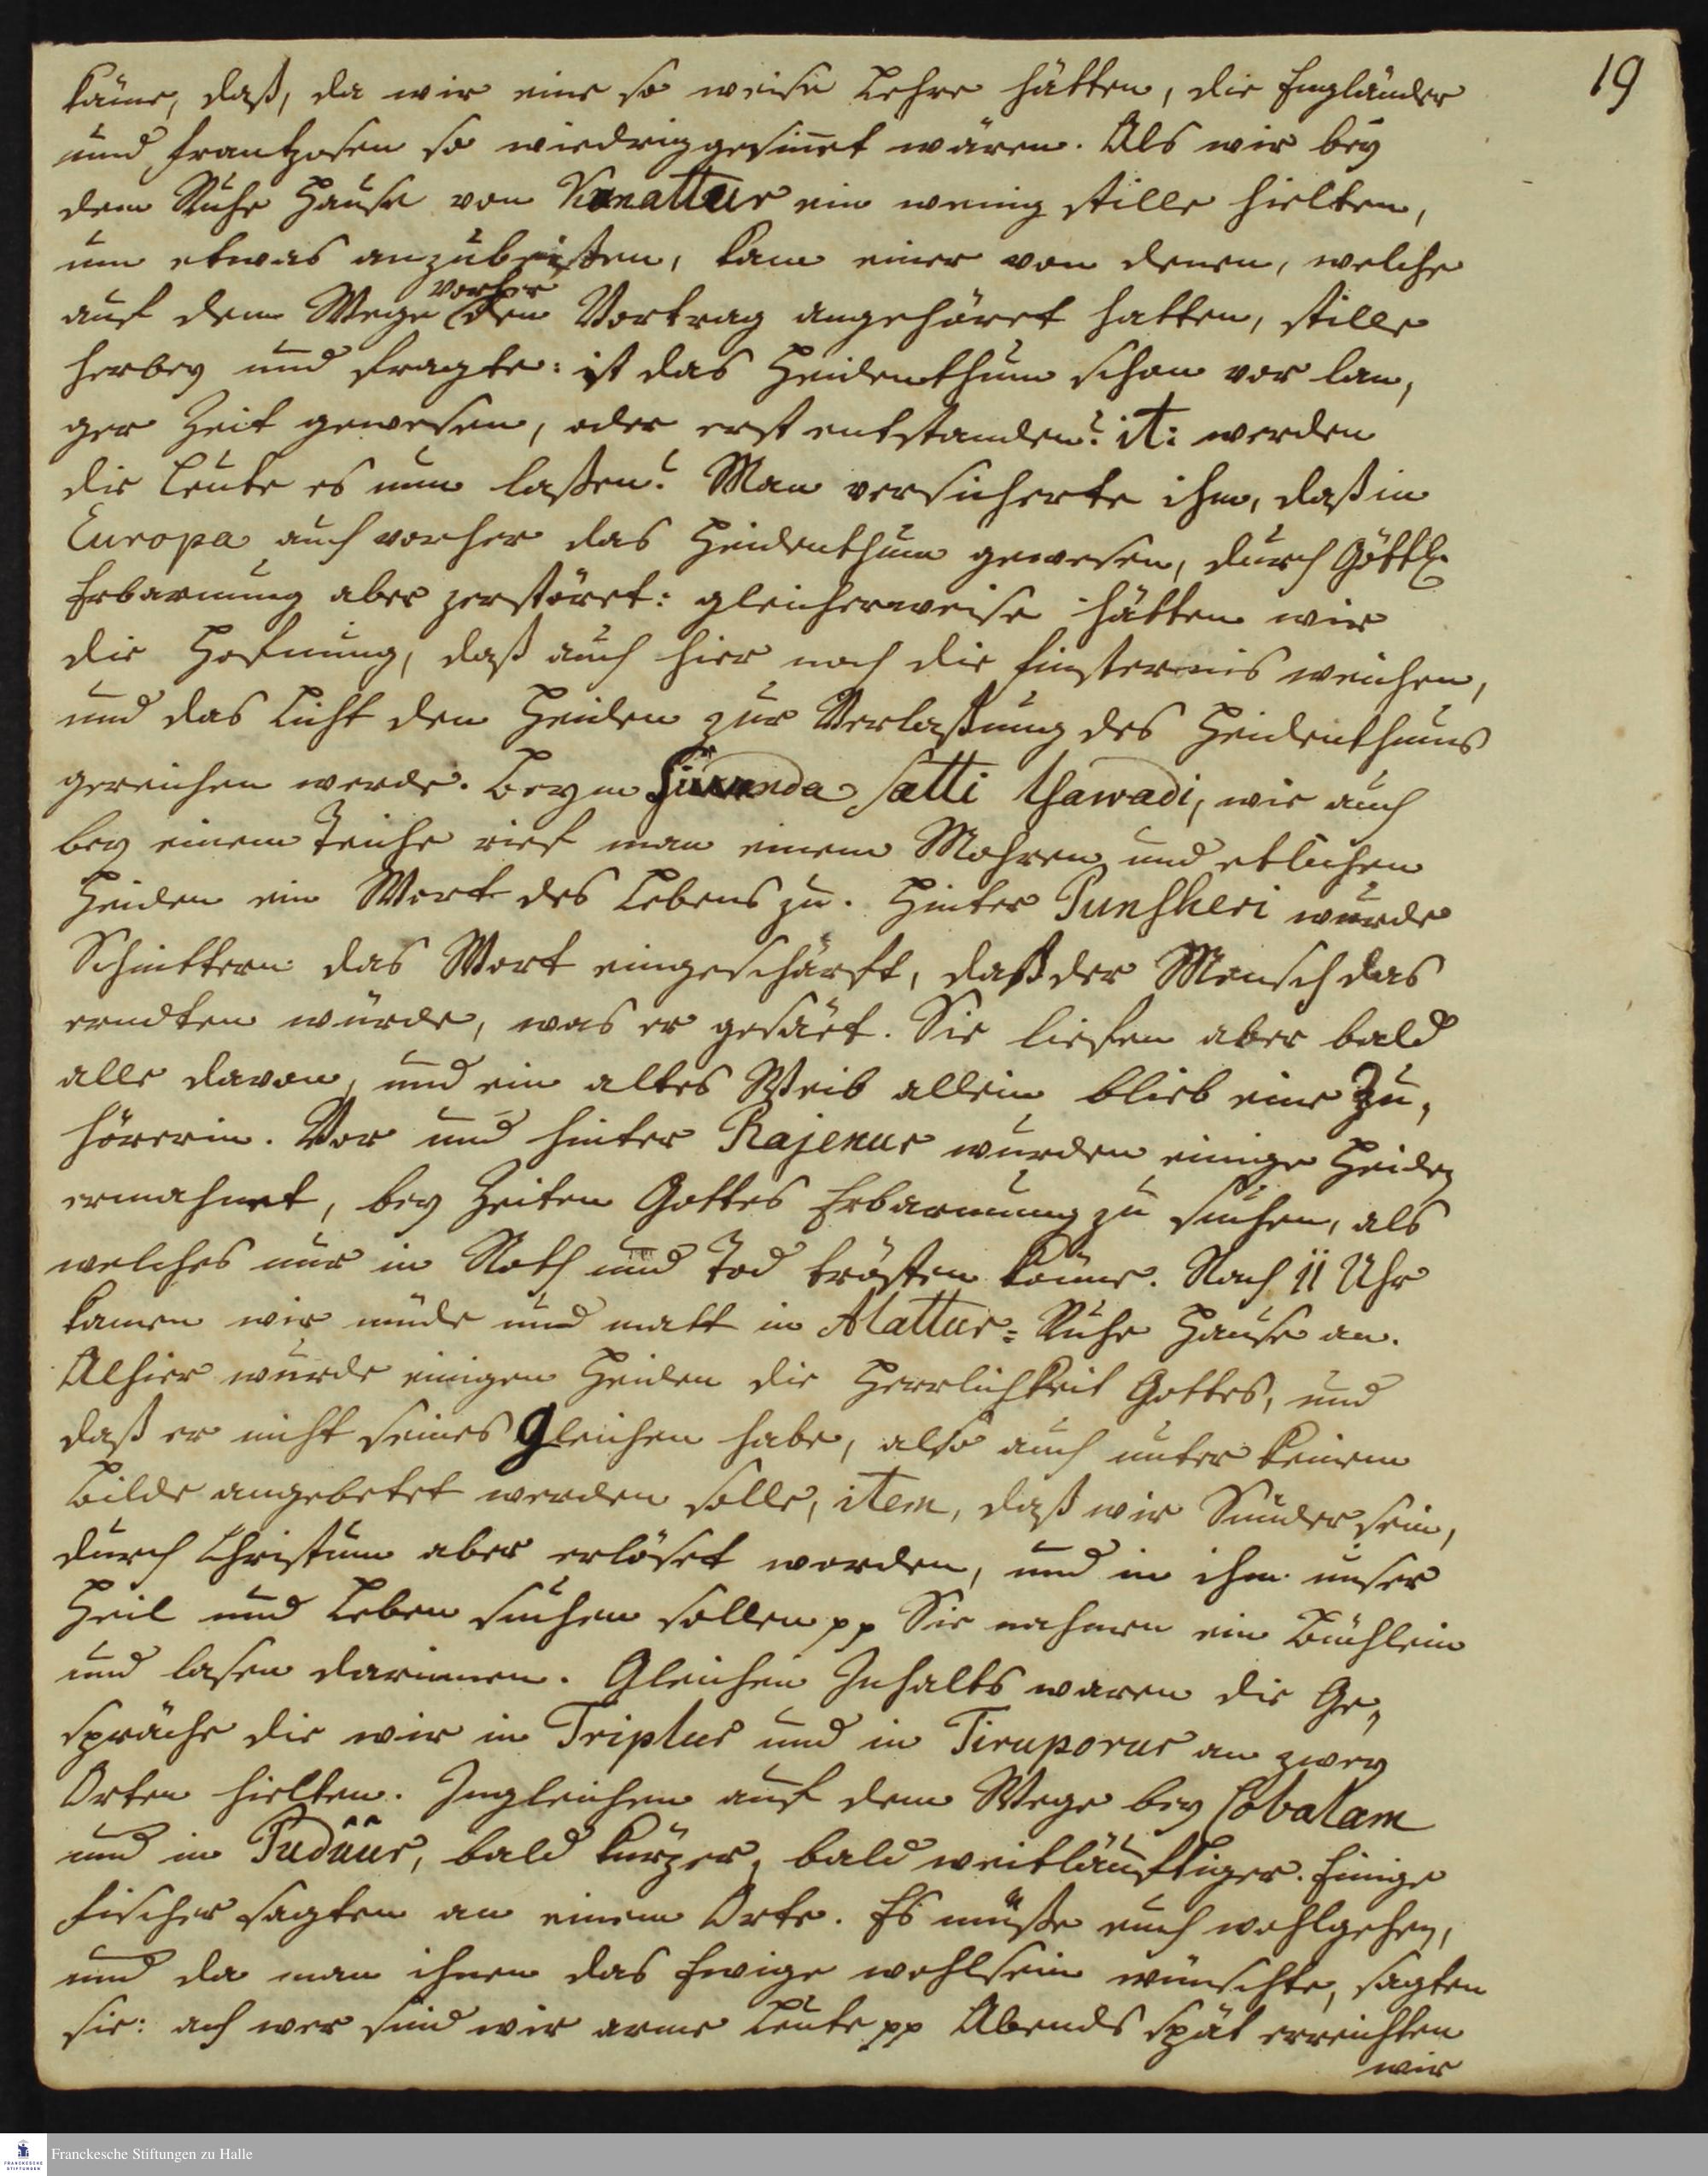 19
käme, daß, da wir eine so weise Lehre hätten, die Engländer
und Frantzosen so wiedriggesin̄et wären. Als wir bey
dem Ruhe Hause von Kunattur ein wenig stille hielten,
um etwas anzubeißen, kam einer von denen, welche
vorher
auf dem Wege den Vortrag angehöret hatten, stille
herbey und fragte: ist das Heidenthum schon vor lan,
ger Zeit gewesen, oder erst entstanden? it: werden
die Leute es nun laßen? Man versicherte ihm, daß in
Europa auch vorher das Heidenthum gewesen, durch Göttl.
Erbarmung aber zerstöret: gleicherweise hätten wir
die Hofnung, daß auch hier noch die Finsternis weichen,
und das Licht den Heiden zur Verlaßung des Heidenthums
gereichen werde. Beym Satti Thawadi, wie auch
bey einem Teiche rief man einem Mohren und etlichen
Heiden ein Wort des Lebens zu. Hinter Punsheri wurde
Schnittern das Wort eingeschärft, daß der Mensch das
erndten würde, was er gesäet. Sie liefen aber bald
alle davon, und ein altes Weib allein blieb eine Zu,
hörerin. Vor und hinter Rajenur wurden einige Heiden
ermahnet, bey Zeiten Gottes Erbarmung zu suchen, als
welches nur in Noth und Tod trösten könne. Nach 11 Uhr
kamen wir müde und matt in Alattur= Ruhe Hause an.
Alhier wurde einigen Heiden die Herrlichkeit Gottes, und
daß er nicht seines Gleichen habe, also auch unter keinem
Bilde angebetet werden solle, item, daß wir Sünder sein,
durch Christum aber erlöset worden, und in ihm unser
Heil und Leben suchen sollen pp Sie nahmen ein Büchlein
und lasen darinnen. Gleichen Inhalts waren die Ge,
spräche die wir in Triplur und in Tiruporur an zwey
Orten hielten. Ingleichen auf dem Wege bey Cobalam
und in Puduur, bald kürzer, bald weitläuftiger. Einige
Fischer sagten an einem Orte. Es müße euch wohlgehen,
und da man ihnen das Ewige wohlsein wünschte, sagten
sie: ach wer sind wir arme Leute pp Abends spät erreichten
wir
Franckesche Stiftungen zu Halle
FRANCKESCHE
STIFTUNGEN